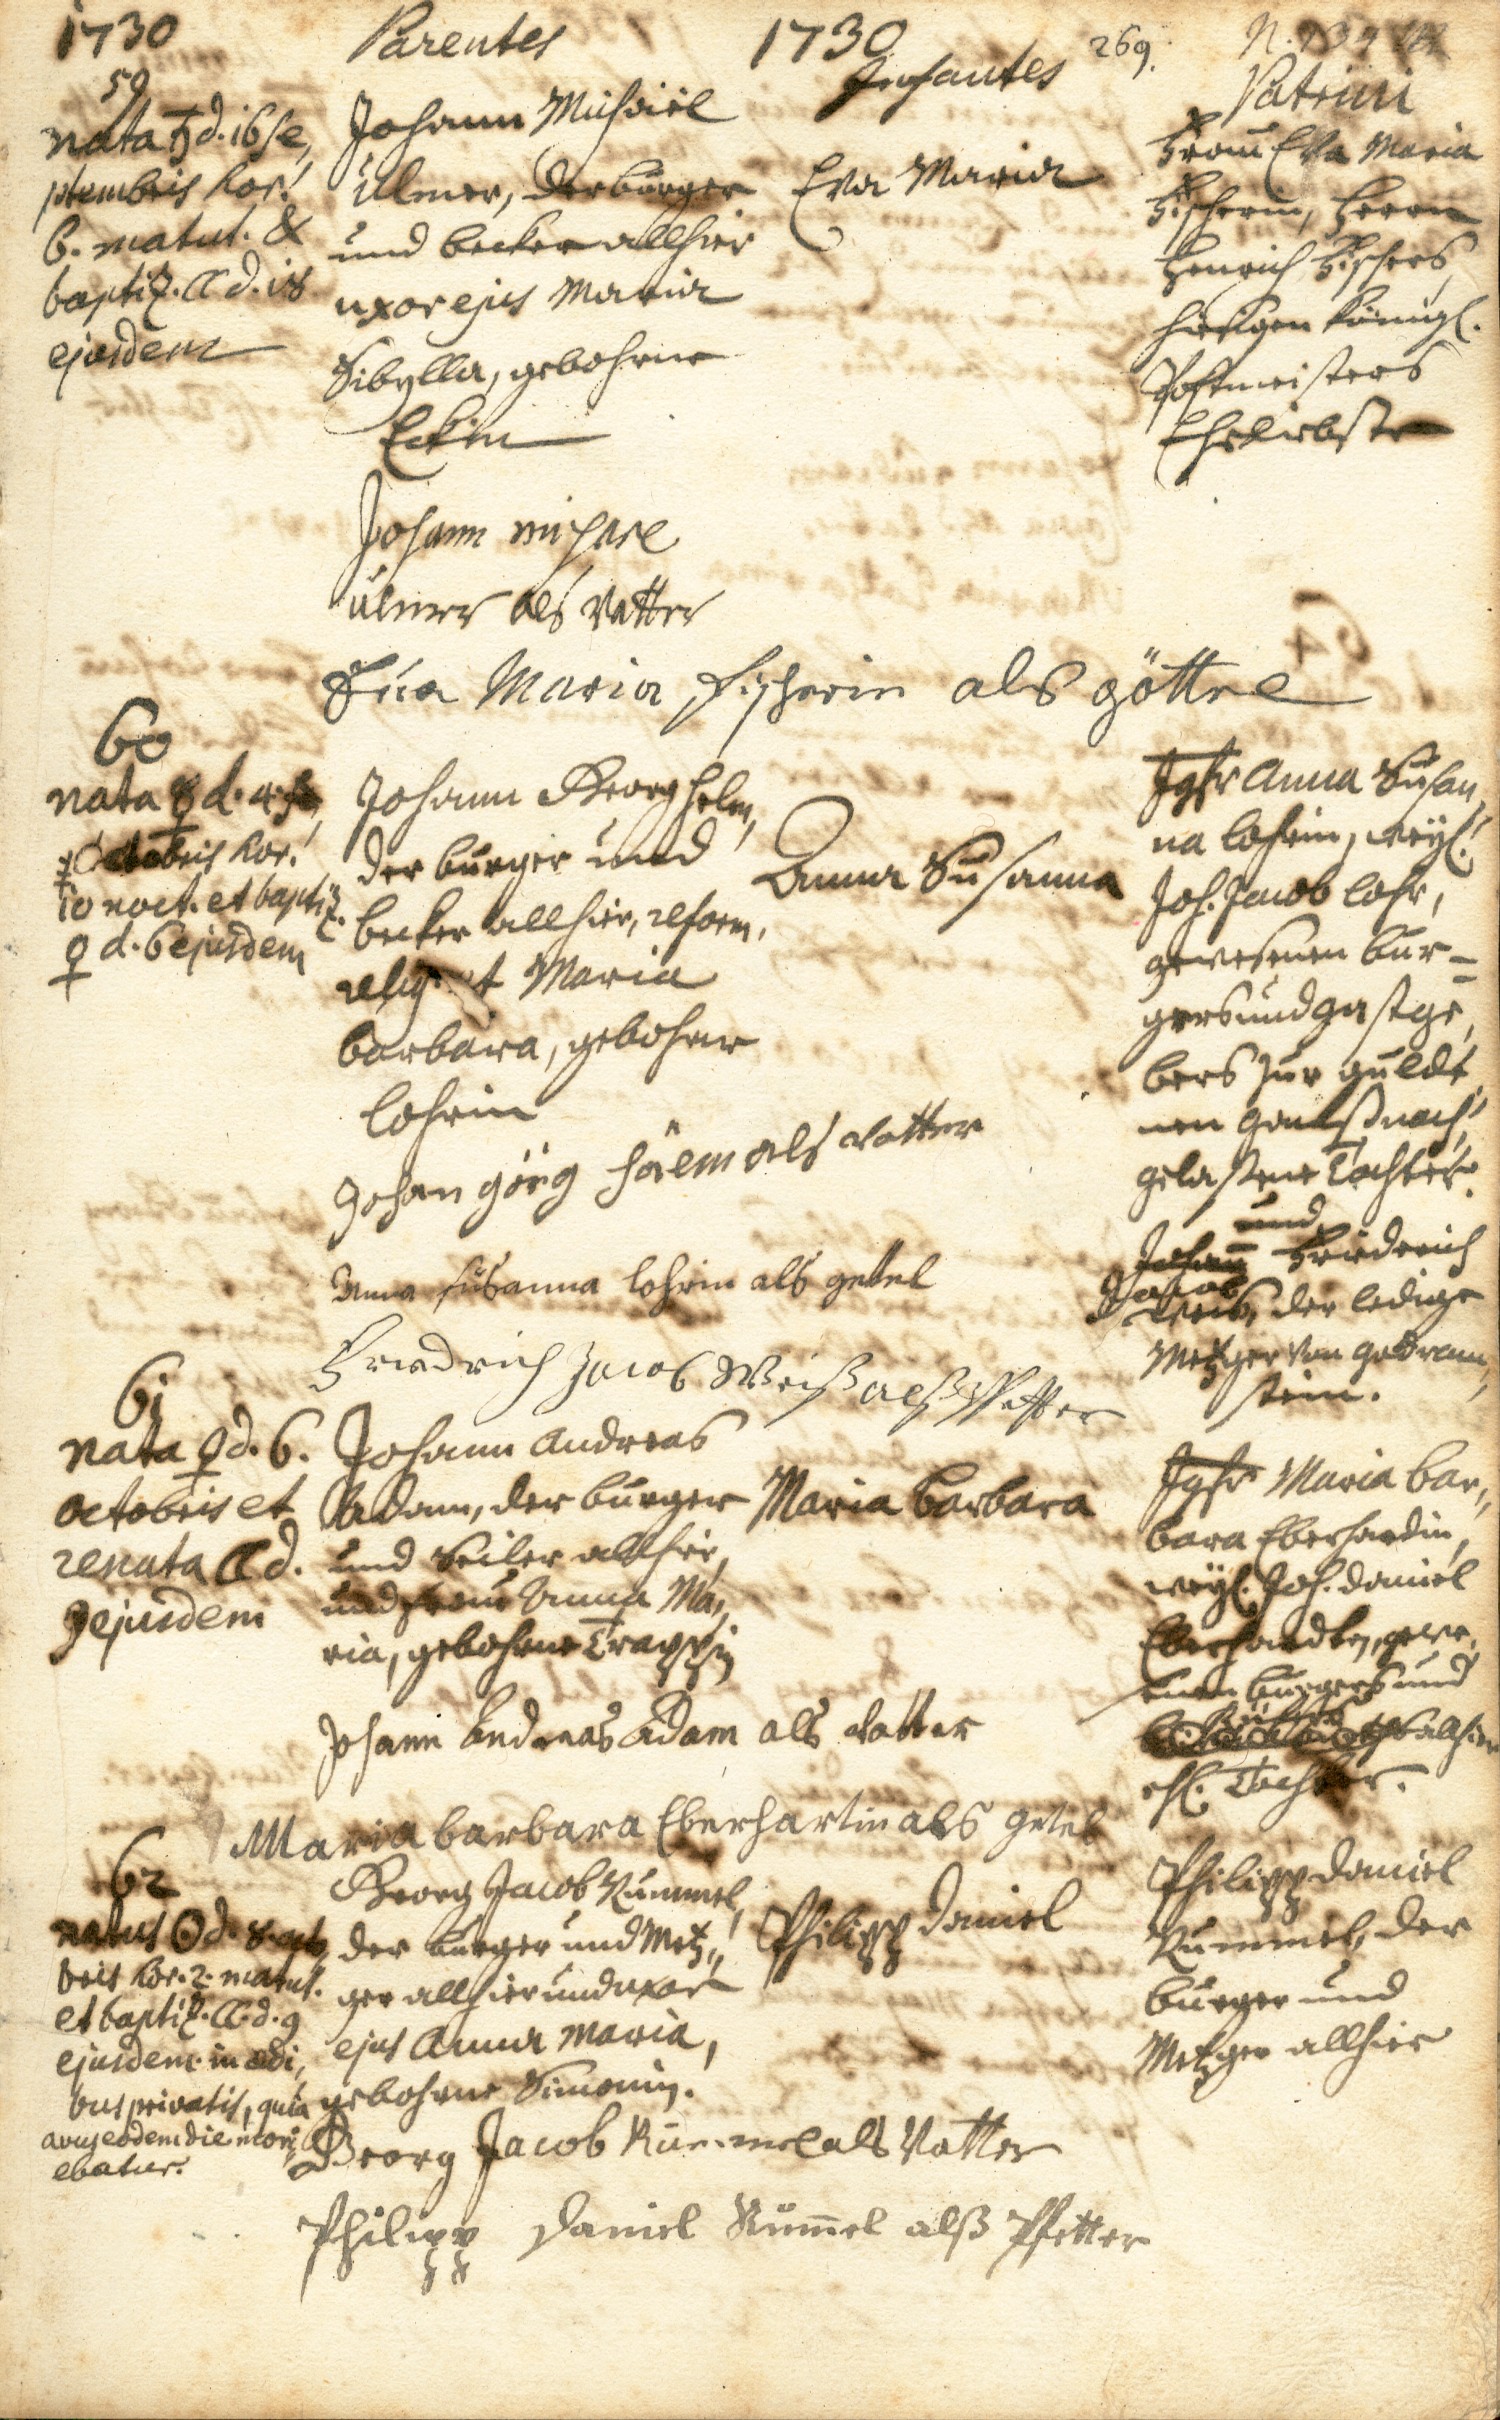 1730
Parentes
1730
Infantes
269.
Patrini
59
nata ♄ d. 16 Se,
ptembris hor.
6. matut. &
baptiz. ☾ d. 18
ejusdem
Johann Michael
Ulmer, der burger
und becker allhier
uxor ejus Maria
Sibylla, gebohrne
Eckin
Eva Maria
Frau Eva Maria
Fischerin, Herrn
Henrich Fischers,
hiesigen Königl.
Postmeisters
Eheliebste
Johann michael
ulmer als Vatter
Eva Maria fischerin als göttel
60
nata ☿ d. 4.
octobris hor.
10 noct. et baptiz.
♀ d. 6 ejusdem
Johann Georg Helm,
der burger und
becker allhier, reform.
relig. et Maria
barbara, gebohrne
Lohrin
Anna Susanna
Jgfr Anna Susan,
na Lohrin, weyl.
Joh. Jacob Lohr,
gewesenen bur=
gers und gastge,
bers zur guld
nen ganß nach,
gelaßene Tochter.
und
Johann Friedrich
Jacob
Weis, der ledige
Metzger von godram,
stein.
Johan görg hälm als vatter
Anna susanna lohrin als getel
Friedrich Jacob Weiß alß Pfetter
61
nata ♀ d. 6.
octobris et
renata ☾ d.
9 ejusdem
Johann Andreas
Adam, der burger
und Seiler allhier,
und frau Anna Ma,,
ria, gebohrne Trappin
Maria Barbara
Jgfr Maria Bar,,
bara Eberhardin,
weyl. Joh. Daniel
Eberhardts, gewe,
senen burgers und
allhier
ehl. Tochter.
Johann Andreas Adam als vatter
Maria barbara Eberhartin als getel
62
natus ☉ d. 8. octo
bris hor. 2. matut.
et baptiz. ☾ d. 9
ejusdem in ædi,
bus privatis, quia
avus eodem die mori,
ebatur.
Georg Jacob Kummel,
der burger und Metz,,
ger allhier und uxor
ejus Anna Maria,
gebohrne Simonin.
Philipp Daniel
Philipp Daniel
Kummel, der
burger und
Metzger allhier
Georg Jacob Kummel als Vatter
Philipp Daniel Kümmel alß Pfetter